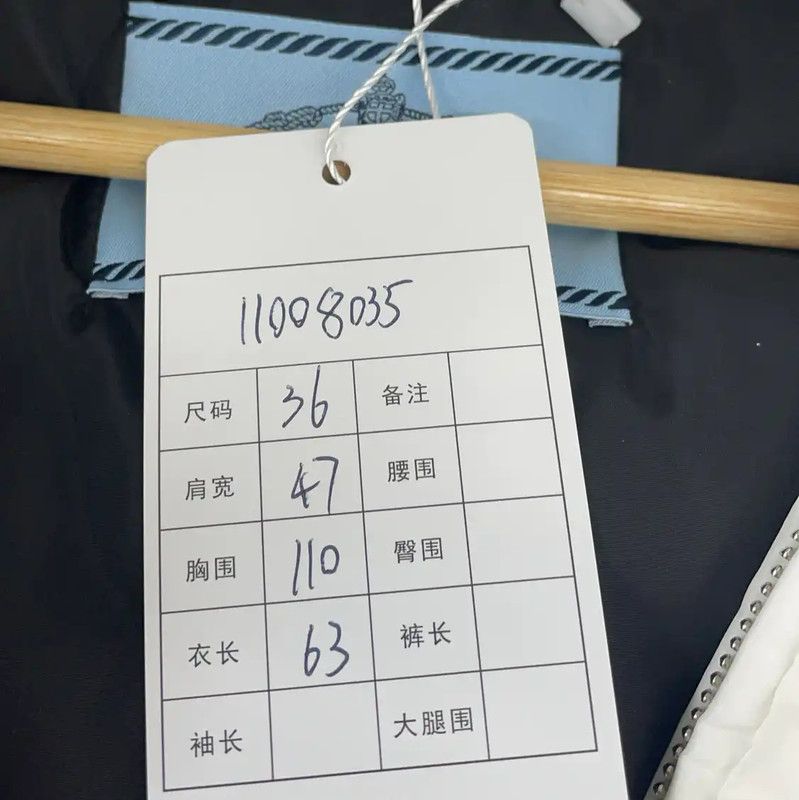 11008035
尺码 36 备注
肩宽 47 腰围
胸围 110 臀围
衣长 63 裤长
袖长 大腿围